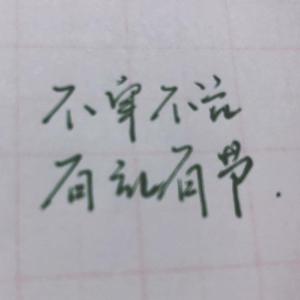 不卑不谄
有礼有节.